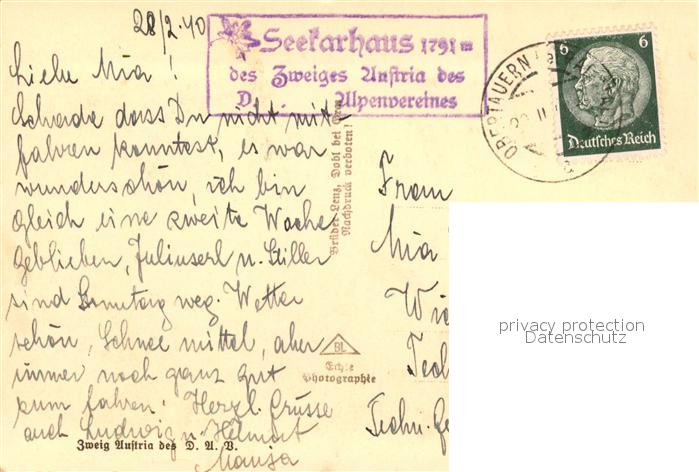 28/2.40
Seekarhaus 1791 m
des Zweiges Austria des
D. Alpenvereines
6 6
Deutsches Reich
OBERTAUERN
Liebe Mia!
Schade dass Du nicht mit-
fahren konntest, es war
wunderschön, ich bin
gleich eine zweite Woche
geblieben, Juliuserl u. Giller
sind Sonntag weg. Wetter
schön, Schnee mittel, aber
immer noch ganz gut
zum fahren. Herzl. Grüsse
auch Ludwig u. Helmut
Brüder Lenz, Dobl bei Graz
Nachdruck verboten!
BL
Echte
Photographie
Zweig Austria des D. A. V.
Frau
Mia
Wie
Tech
Techn.
privacy protection
Datenschutz